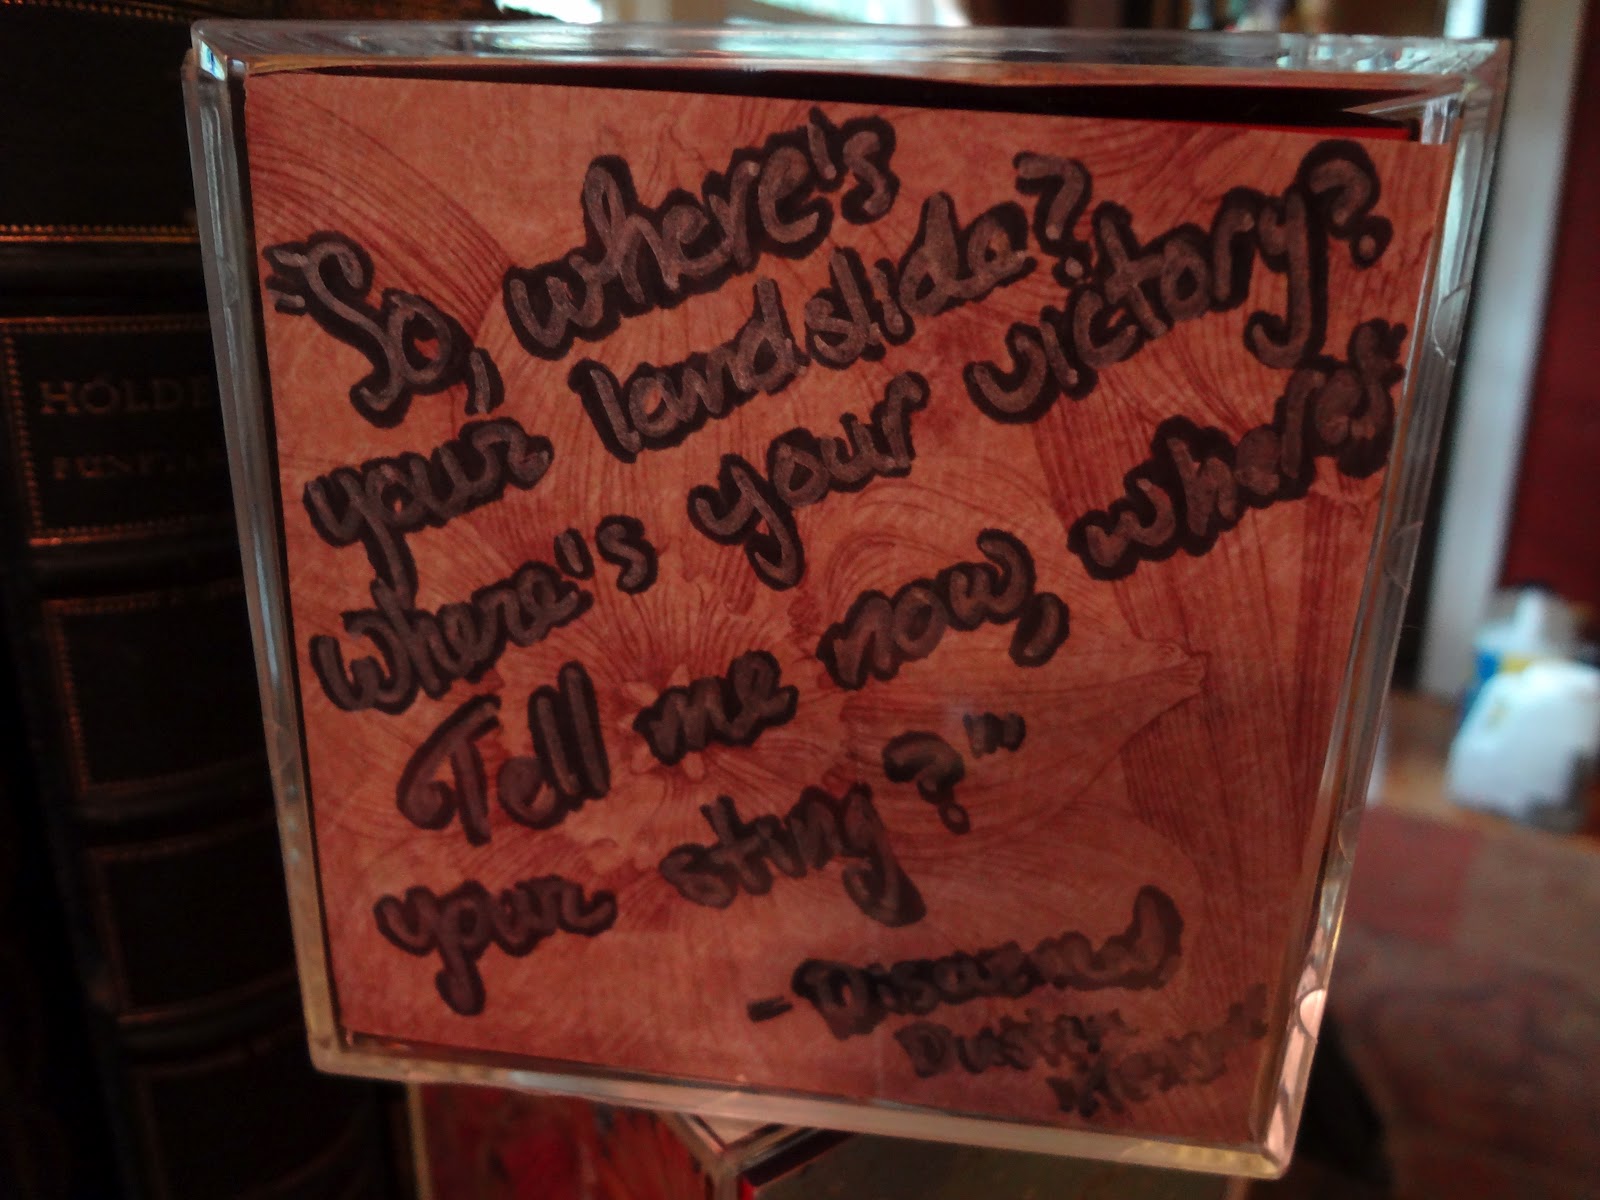 HÖLDE
FÜNFT
"So, where's
your landslide?
where's your victory?
Tell me now, where's
your sting?"
- Disarmed
Dustin
Kensrue